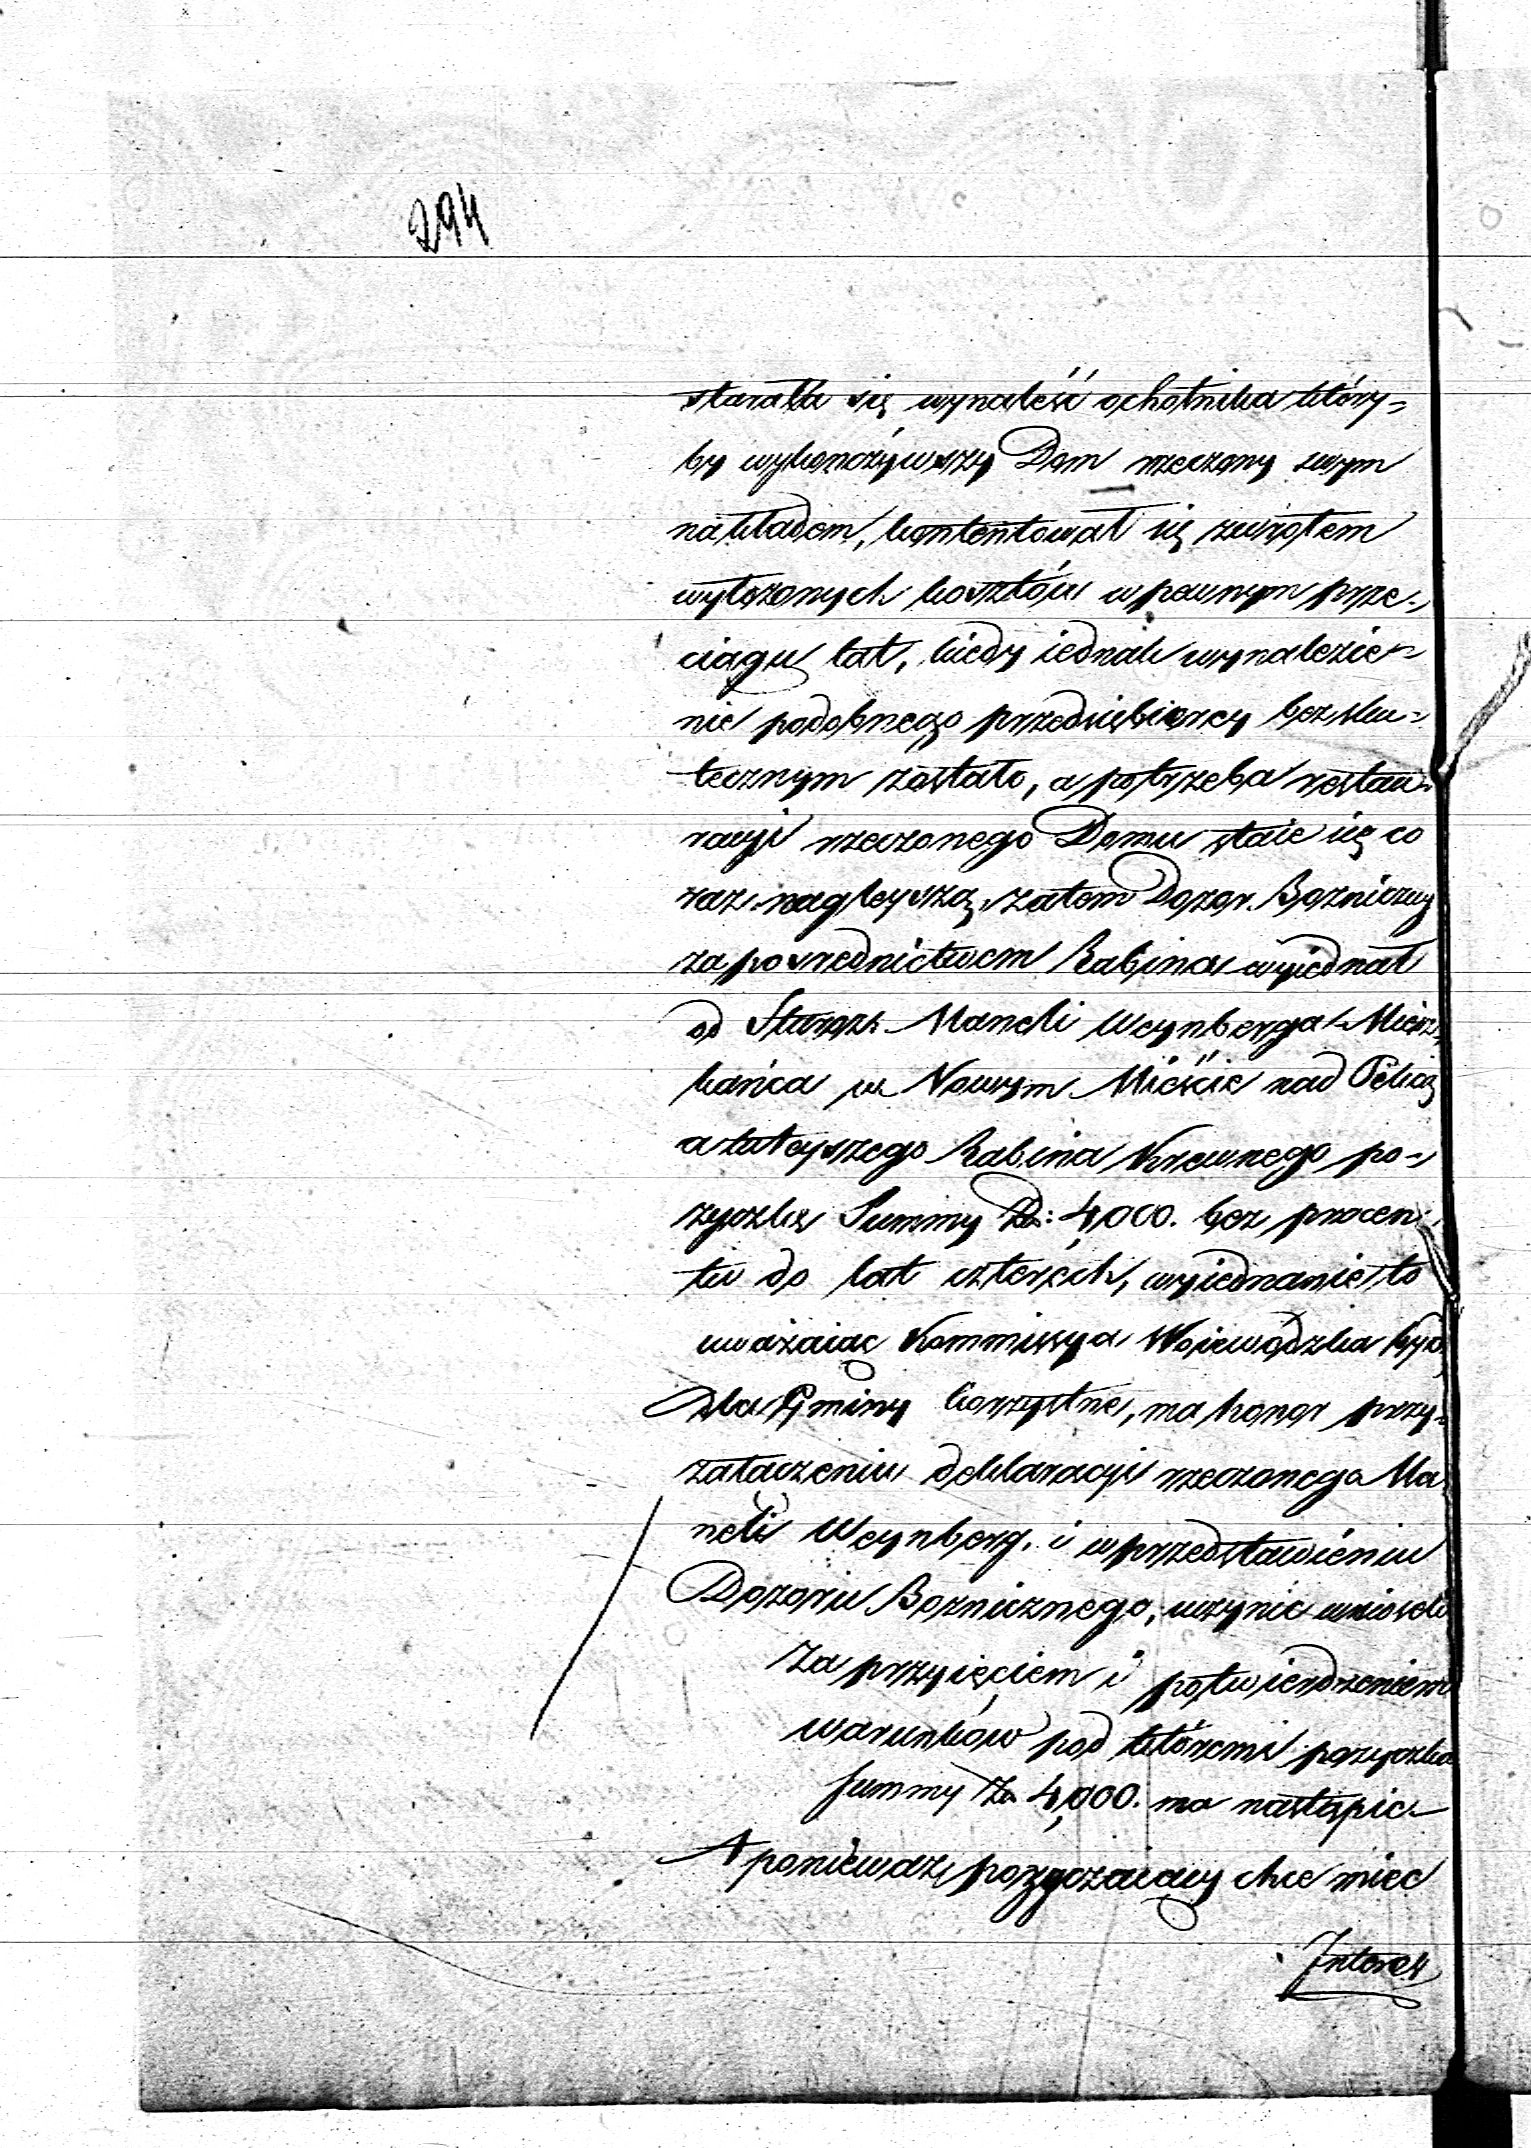 294
starała się wynaleść ochotnika który=
by wykończywszy Dom rzeczony swym
nakładem, kontentował się zwrotem
wyłożonych kosztów w pewnym prze-
ciągu lat, kiedy iednak wynalezie=
nie podobnego przedsiębiorcy bezsku=
tecznym zostało, a potrzeba restau=
racyi rzeczonego Domu staie się co
raz nagleyszą, zatem Dozor Bozniczny
za posrednictwem Rabina wyiednał
od Starozk. Maneli Weynberga Miesz
kańca w Nowym Mieście nad Pilicą
a tuteyszego Rabina Krewnego po=
zyczkę Summy Zł: 4,000. bez procen
tu do lat czterech, wyiednanie to
uważaiąc Kommissya Woiewódzka byc
dla Gminy korzystne, ma honor przy
załączeniu deklaracyi rzeczonego Ma
neli Weynberg. i w przedstawieniu
Dozoru Boznicznego, uczynic wniosek
za przyięciem i potwierdzeniem
warunków pod któremi pozyczka
summy Zł 4,000. ma nastąpic
A poniewaz pozyczaiący chce miec